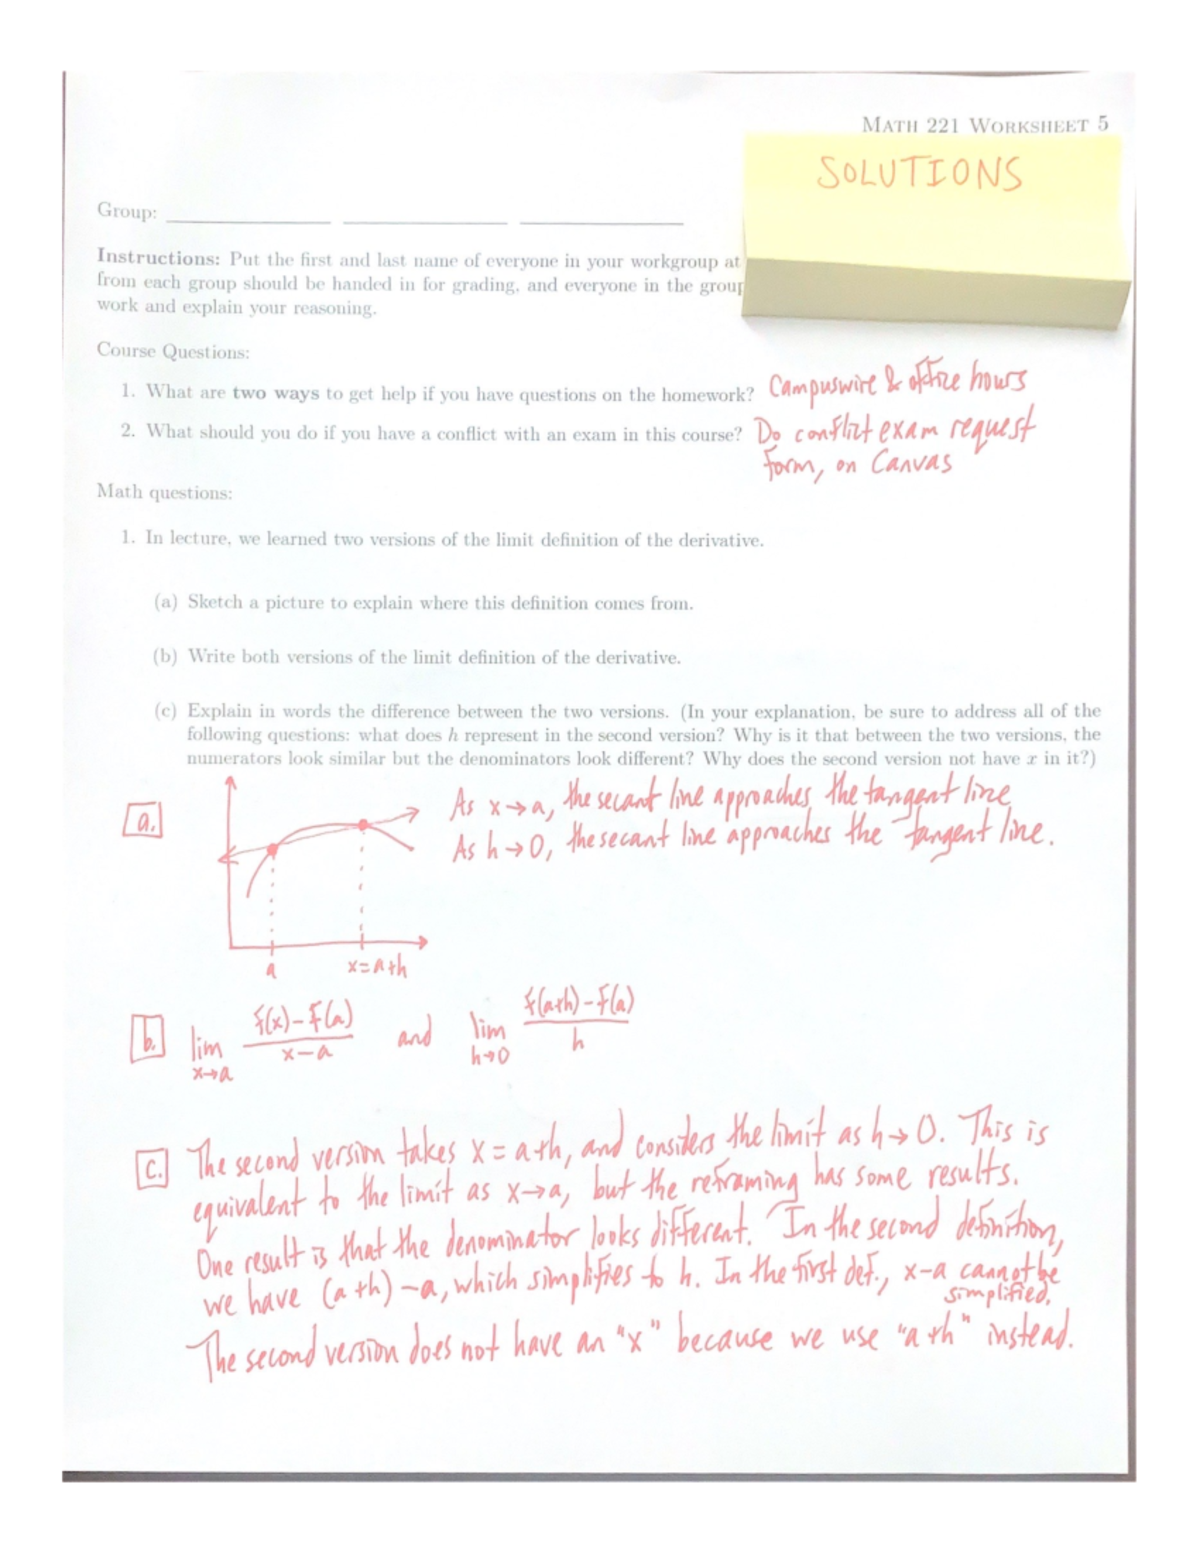 MATH 221 WORKSHEET 5
SOLUTIONS
Group:
Instructions: Put the first and last name of everyone in your workgroup at
from each group should be handed in for grading, and everyone in the group
work and explain your reasoning.
Course Questions:
1. What are two ways to get help if you have questions on the homework? Campuswire & office hours
2. What should you do if you have a conflict with an exam in this course? Do conflict exam request
form, on Canvas
Math questions:
1. In lecture, we learned two versions of the limit definition of the derivative.
(a) Sketch a picture to explain where this definition comes from.
(b) Write both versions of the limit definition of the derivative.
(c) Explain in words the difference between the two versions. (In your explanation, be sure to address all of the
following questions: what does h represent in the second version? Why is it that between the two versions, the
numerators look similar but the denominators look different? Why does the second version not have x in it?)
a.
As x→a, the secant line approaches the tangent line
As h→0, the secant line approaches the tangent line.
a x=a+h
b. lim x→a f(x)-f(a) / x-a and lim h→0 f(a+h)-f(a) / h
c. The second version takes x=a+h, and considers the limit as h→0. This is
equivalent to the limit as x→a, but the reframing has some results.
One result is that the denominator looks different. In the second definition,
we have (a+h)-a, which simplifies to h. In the first def., x-a cannot be
simplified.
The second version does not have an "x" because we use "a+h" instead.